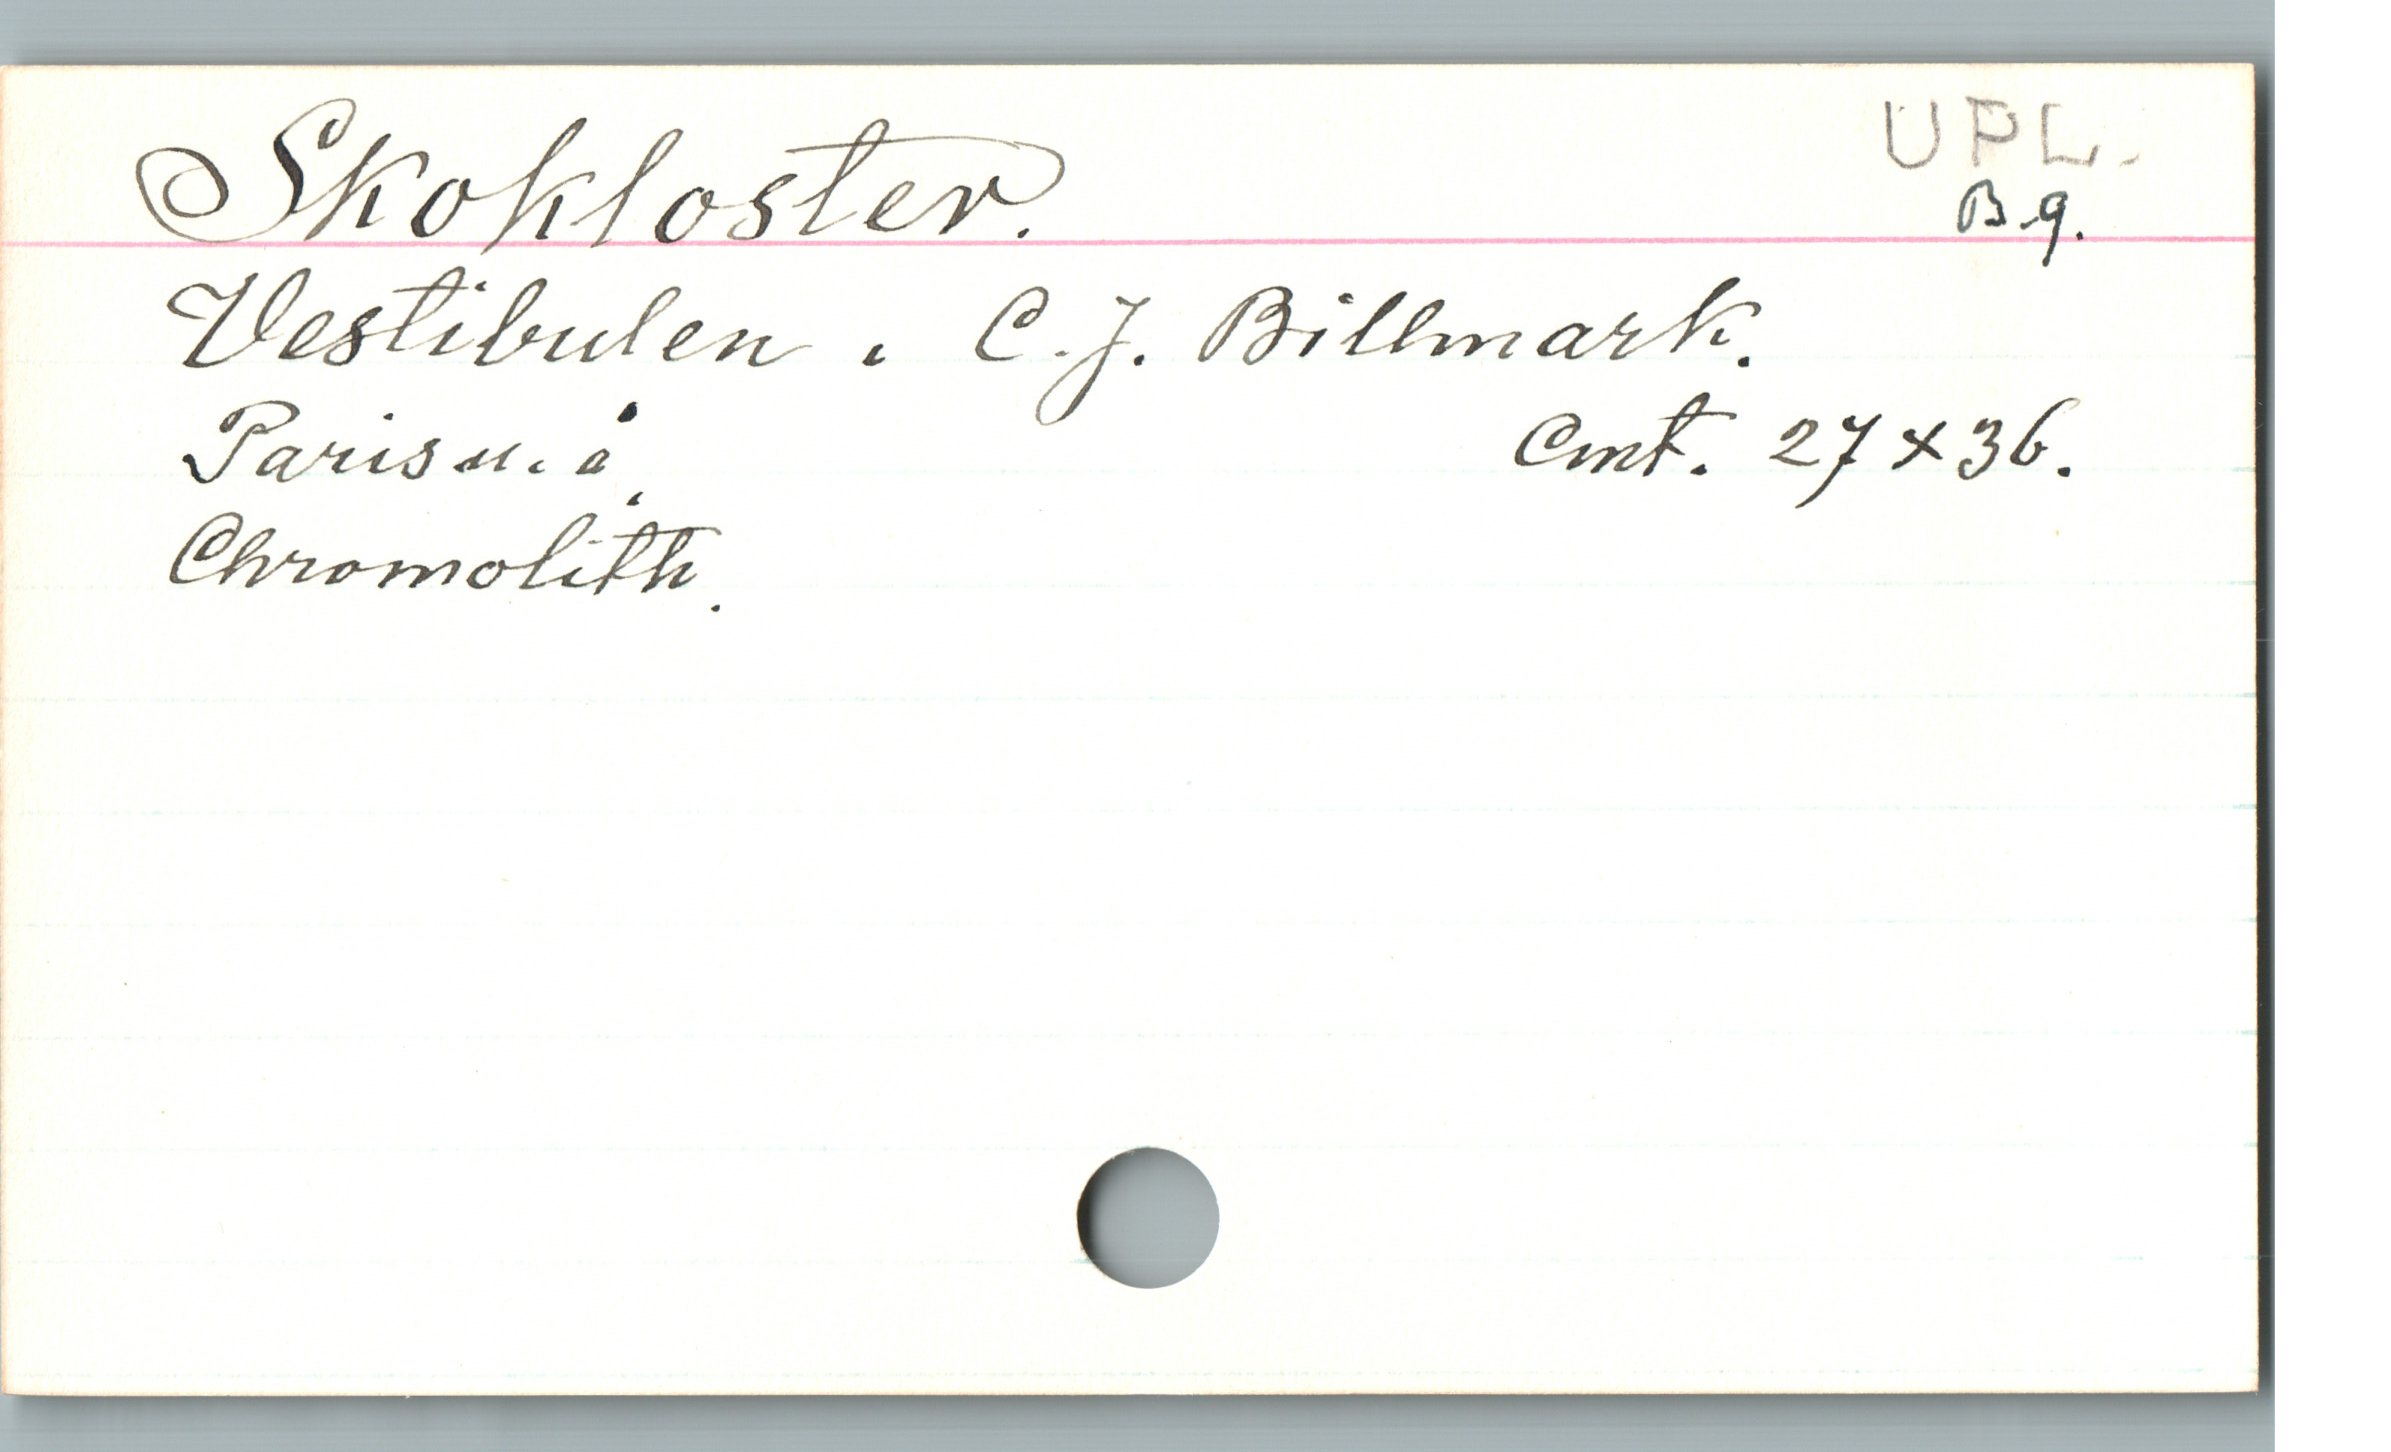 Skokloster.
UPL.
B.q.
Vestibulen. C. J. Billmark.
Paris u. å.
Cmt. 27 x 36.
Chromolith.